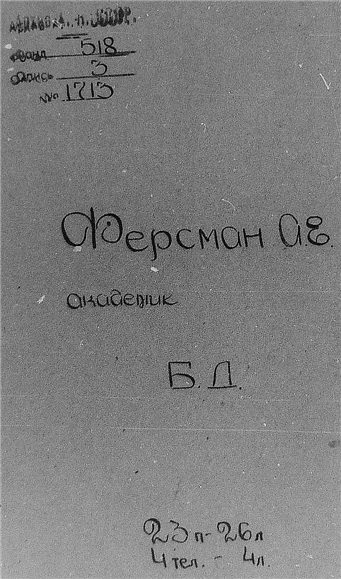 518
опись 3
№ 1713
Ферсман А.Е.
академик
Б.Д.
23 п - 26 л
4 тел. - 4 л.